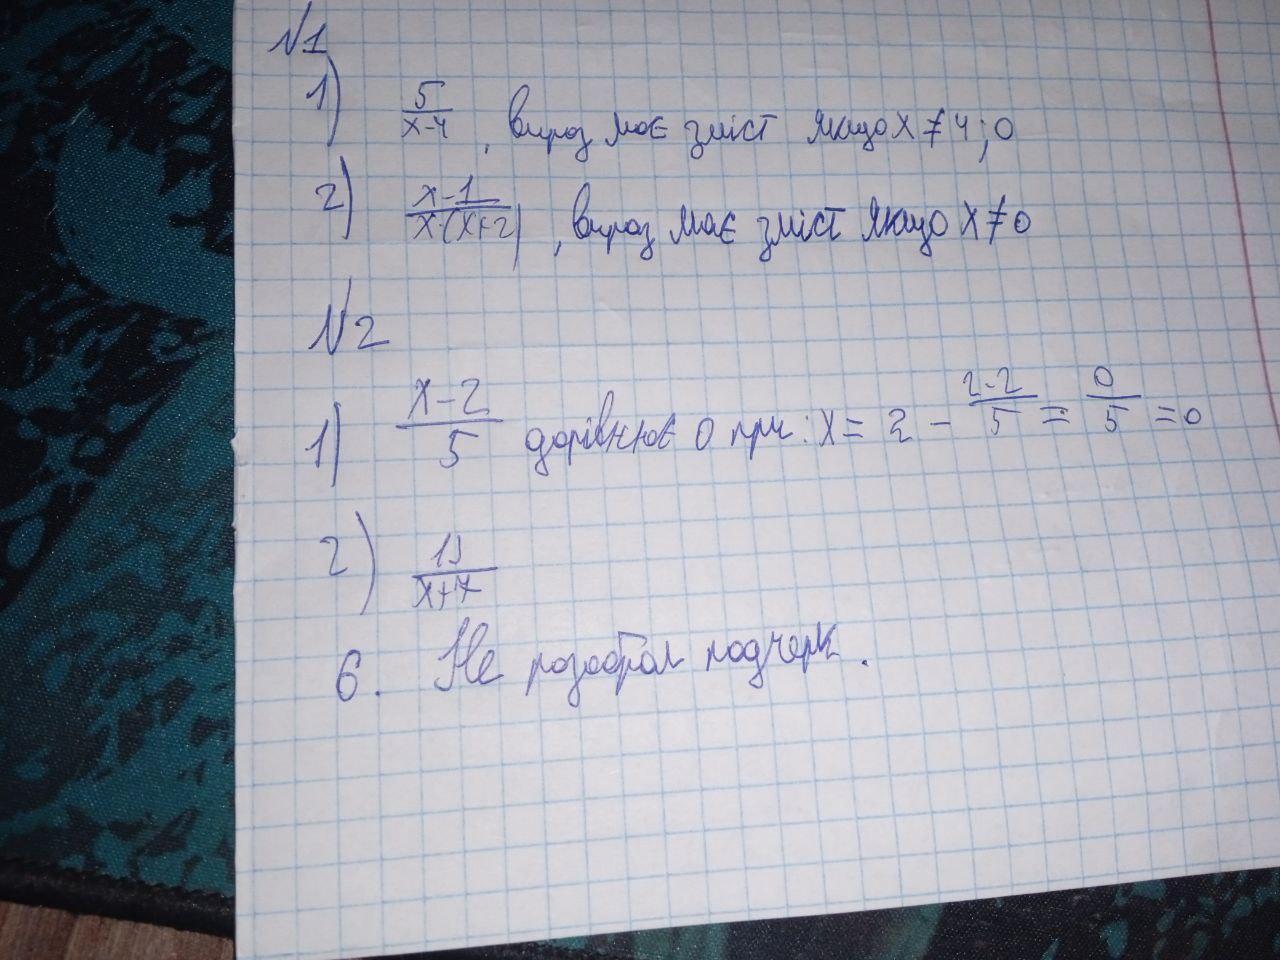 №1
1) 5/(x-4), вираз має зміст якщо x ≠ 4; 0
2) (x-1)/(x·(x+2)), вираз має зміст якщо x ≠ 0
№2
1) (x-2)/5 дорівнює 0 при: x = 2 - (2-2)/5 = 0/5 = 0
2) 13/(x+7)
6. Не розобрал подчерк.